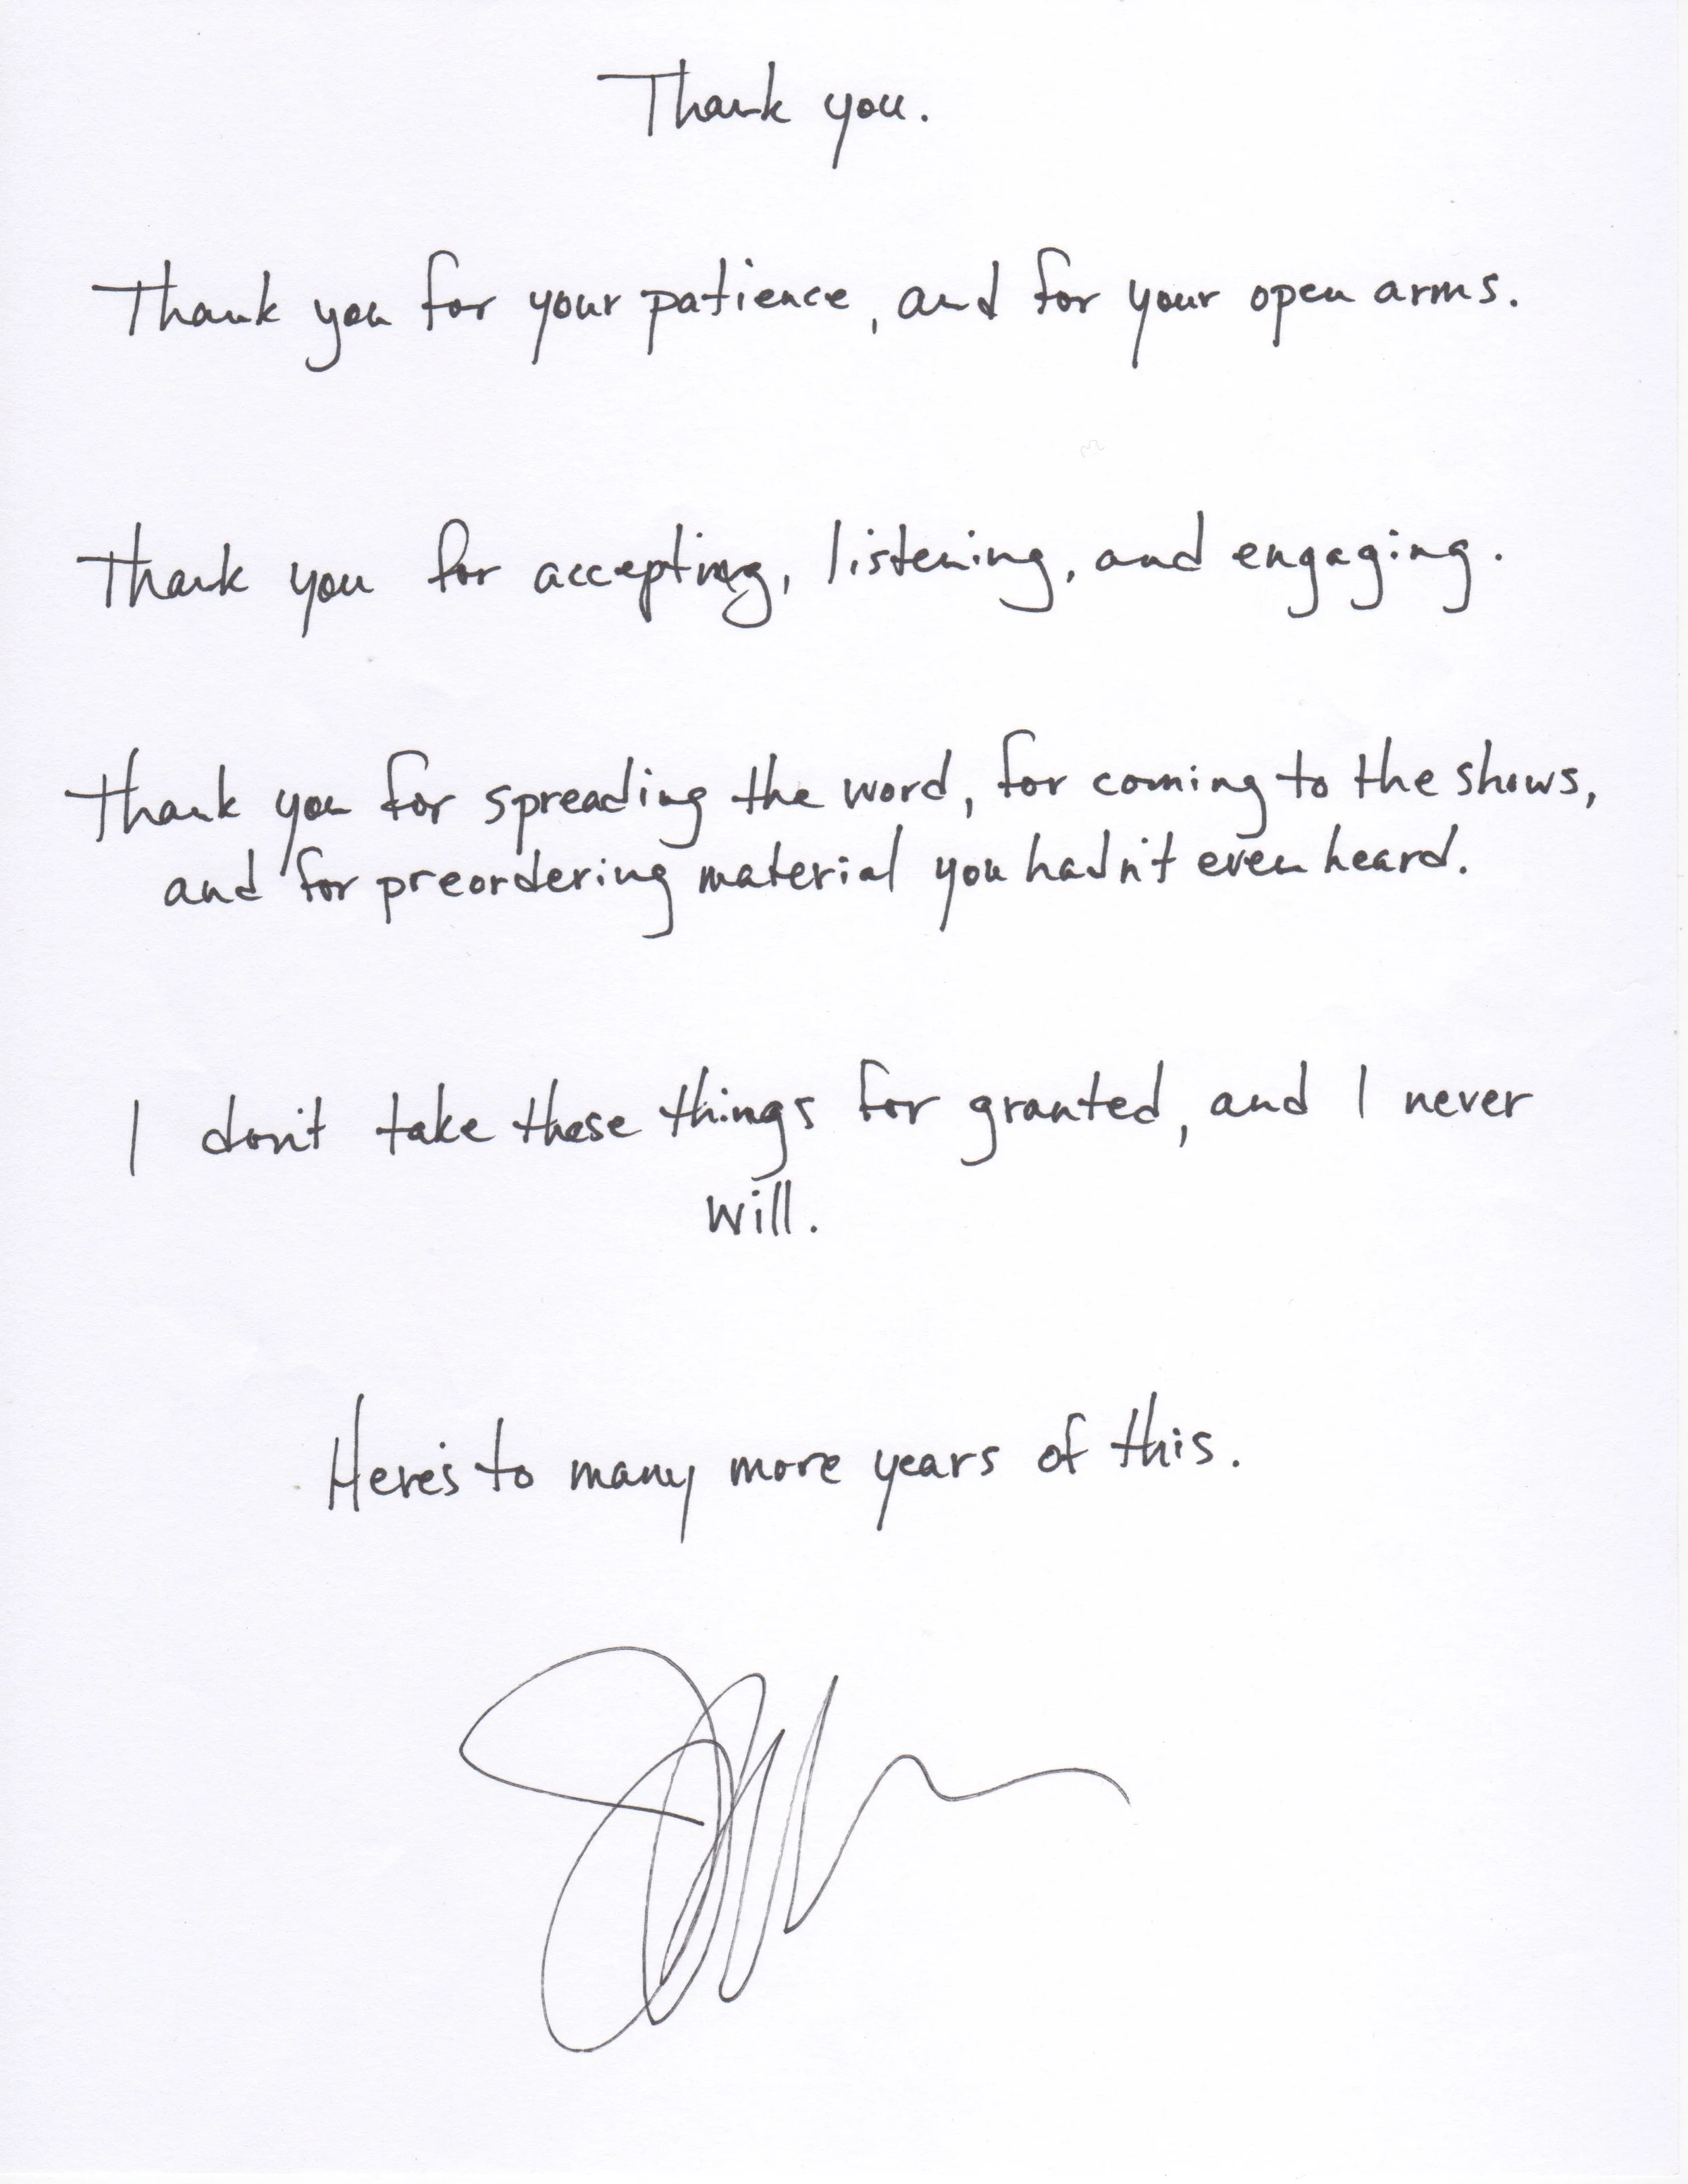 Thank you.
Thank you for your patience, and for your open arms.
Thank you for accepting, listening, and engaging.
Thank you for spreading the word, for coming to the shows,
and for preordering material you hadn't even heard.
I don't take these things for granted, and I never
will.
Here's to many more years of this.